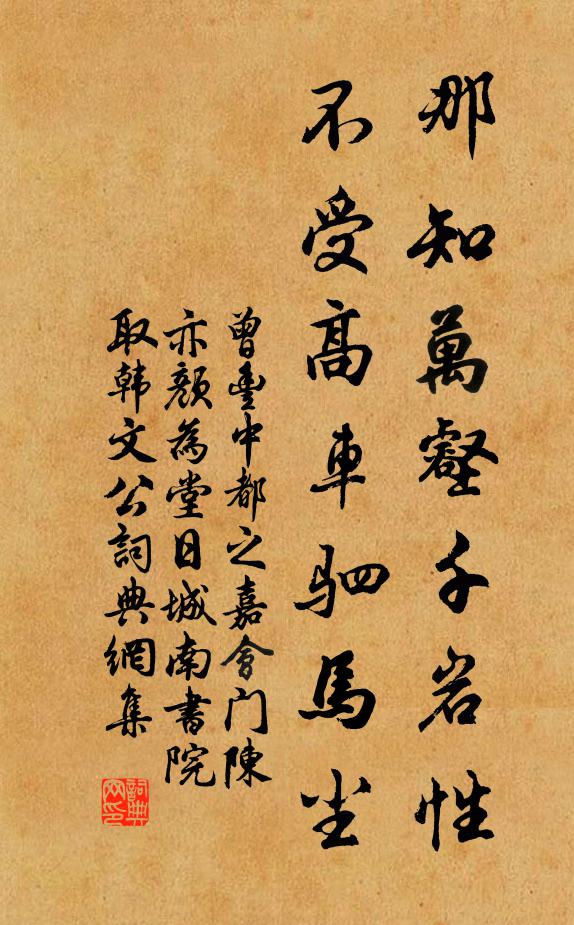 那知萬壑千岩性
不受高車驷馬尘
曾豐中都之嘉會门陳
亦颜為堂日城南書院
取韩文公詞典網集
詞典
网印